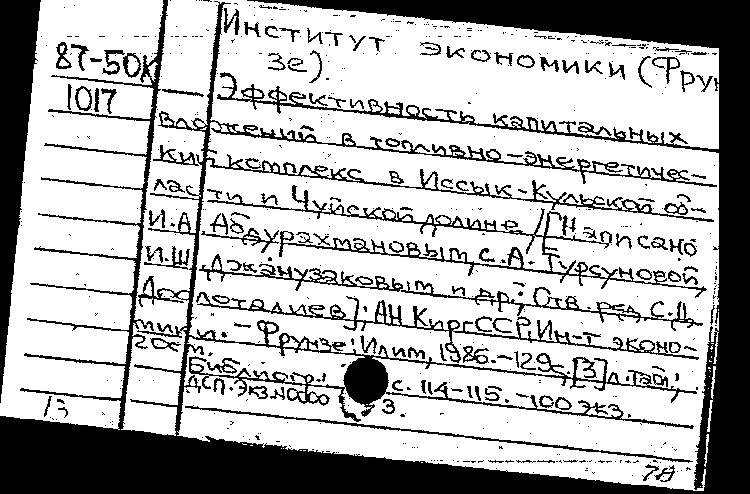 Институт экономики (Фрун
зе).
87-50К
1017
Эффективность капитальных
вложений в топливно-энергетичес-
кий комплекс в Иссык-Кульской об-
ласти и Чуйской долине / [Написано
И.А. Абдурахмановым, С.А. Турсуновой,
И.Ш. Джанузаковым и др.; Отв. ред. С.Д.
]; АН КиргССР, Ин-т эконо-
мики. - Фрунзе: Илим, 1986. - 129 с, [3] л. табл;
20 см.
Библиогр.: с. 114-115. - 100 экз.
ДСП. Экз. N 3.
13